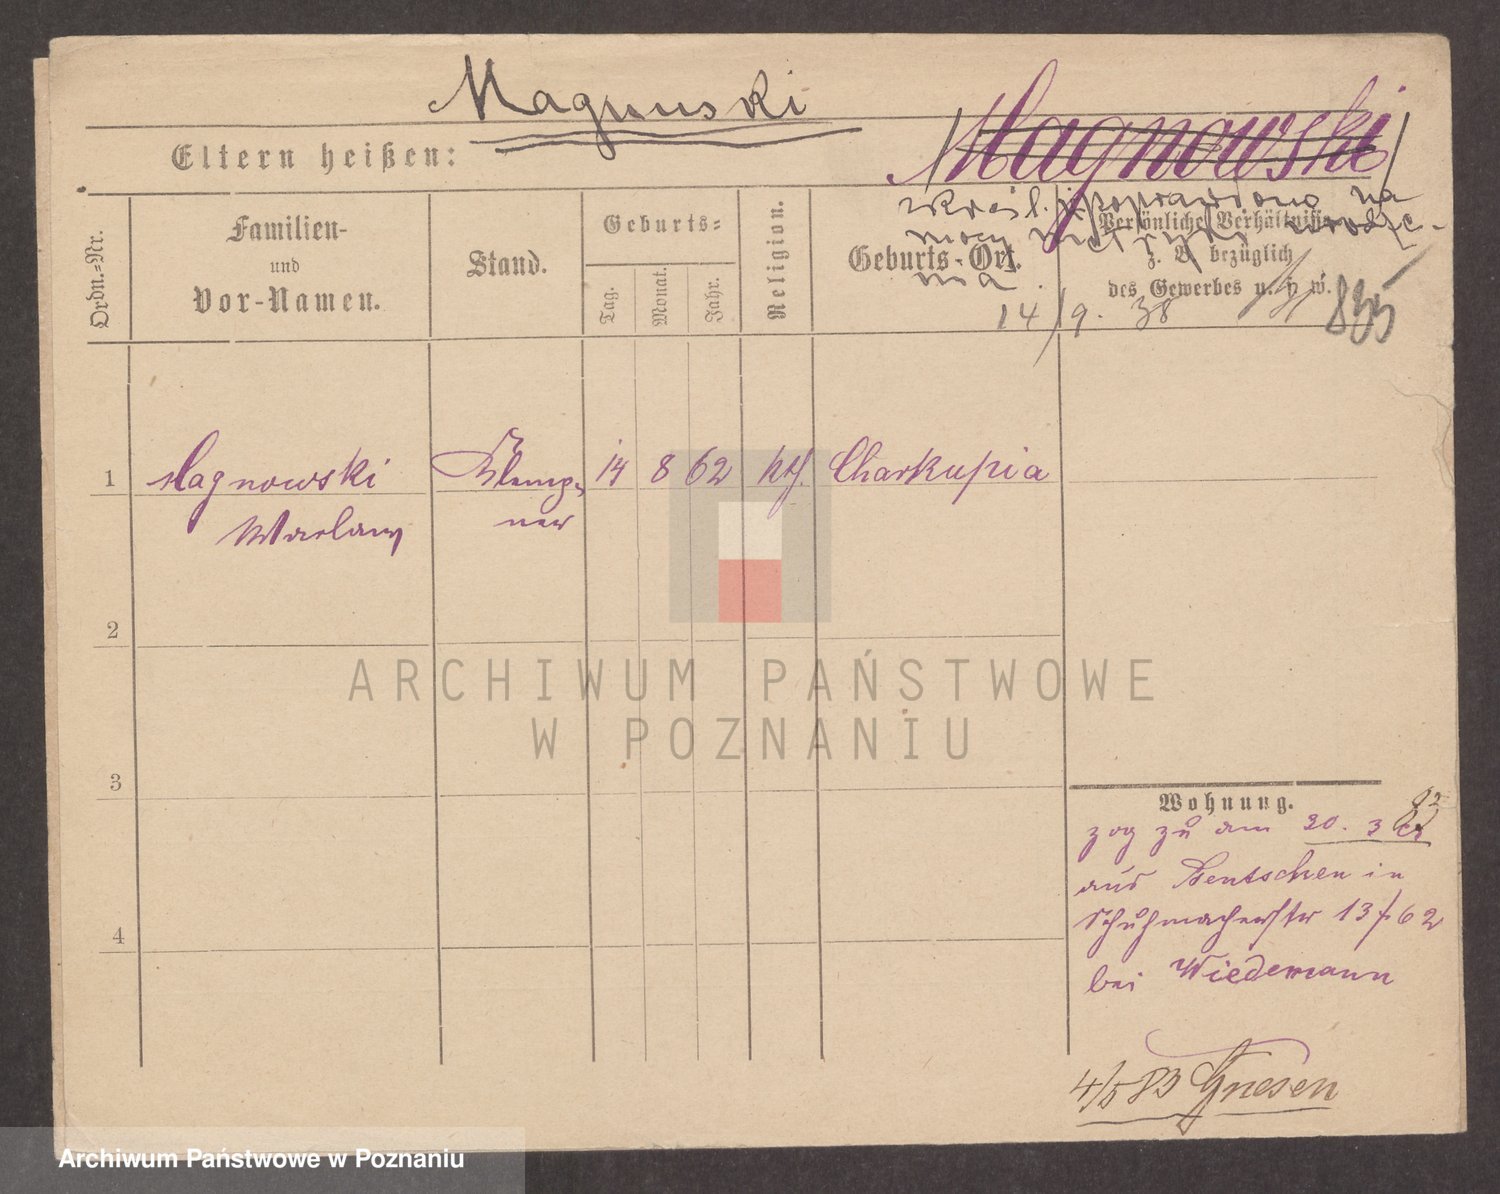 Magnuski
Magnowski
Eltern heißen:
skreśl. i poprawiono na
mocy metryki urodze-
nia.
14/9. 38
835
Ordn.=Nr.
Familien-
und
Vor-Namen.
Stand.
Geburts=
Tag.
Monat.
Jahr.
Religion.
Geburts-Ort.
Persönliche Verhältnisse
z. B. bezüglich
des Gewerbes u. s. w.
1
Magnowski
Klemp=
14
8
62
kth.
Charkupia
Waclaw
ner
2
3
4
Wohnung.
83
zog zu am 20. 3
aus Bentschen in
Schuhmacherstr 13 / 62
bei Wiedemann
4/5 83 Gnesen
ARCHIWUM PAŃSTWOWE
W POZNANIU
Archiwum Państwowe w Poznaniu